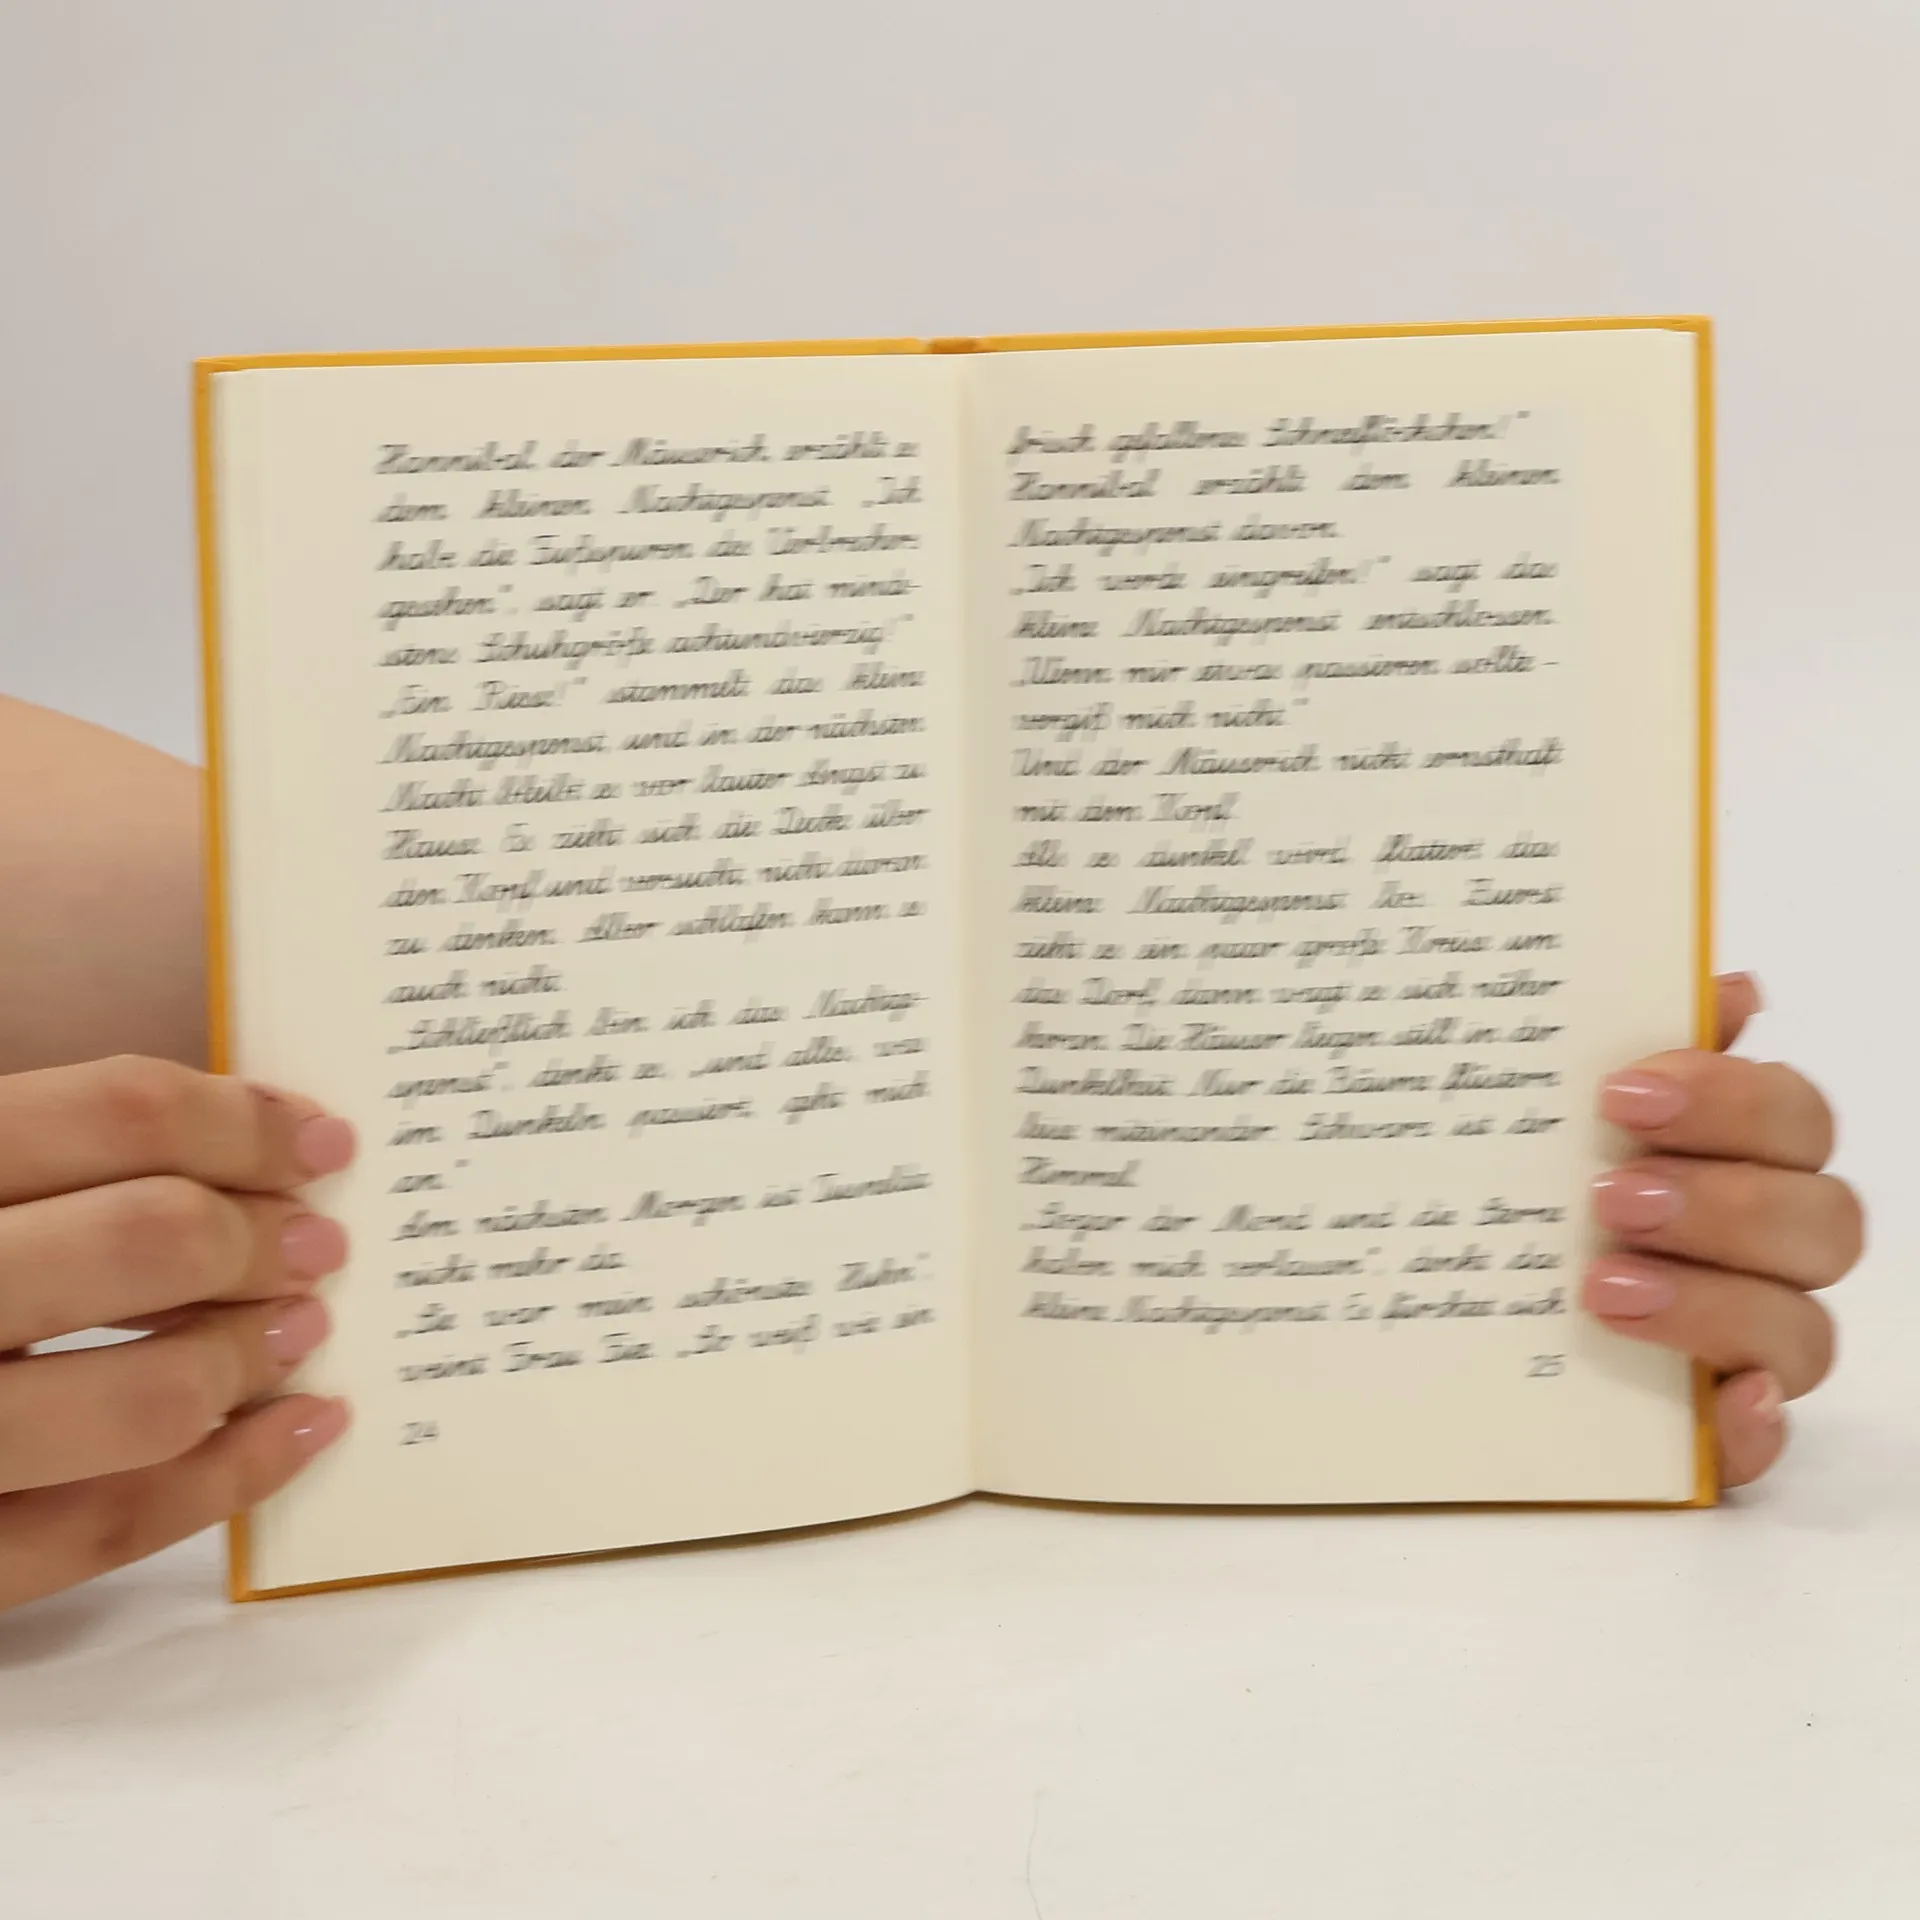 Hannibal, der Mäuserich, erzählt es
dem kleinen Nachtgespenst. „Ich
habe die Fußspuren des Verbrechers
gesehen", sagt er. „Der hat minde-
stens Schuhgröße achtundvierzig!"
„Ein Riese!" stammelt das kleine
Nachtgespenst, und in der nächsten
Nacht bleibt es vor lauter Angst zu
Hause. Es zieht sich die Decke über
den Kopf und versucht, nicht daran
zu denken. Aber schlafen kann es
auch nicht.
„Schließlich bin ich das Nachtge-
spenst", denkt es, „und alles, was
im Dunkeln passiert, geht mich
an."
Am nächsten Morgen ist
nicht mehr da.
„Sie war mein schönstes Huhn",
weint Frau „So weiß wie ein
24
frisch gefallenes Schneeflöckchen!"
Hannibal erzählt dem kleinen
Nachtgespenst davon.
„Ich werde eingreifen!" sagt das
kleine Nachtgespenst entschlossen.
„Wenn mir etwas passieren sollte –
vergiß mich nicht."
Und der Mäuserich nickt ernsthaft
mit dem Kopf.
Als es dunkel wird, flattert das
kleine Nachtgespenst los. Zuerst
zieht es ein paar große Kreise um
das Dorf, dann wagt es sich näher
heran. Die Häuser liegen still in der
Dunkelheit. Nur die Bäume flüstern
leise miteinander. Schwarz ist der
Himmel.
„Sogar der Mond und die Sterne
haben mich verlassen", denkt das
kleine Nachtgespenst. Es fürchtet sich
25